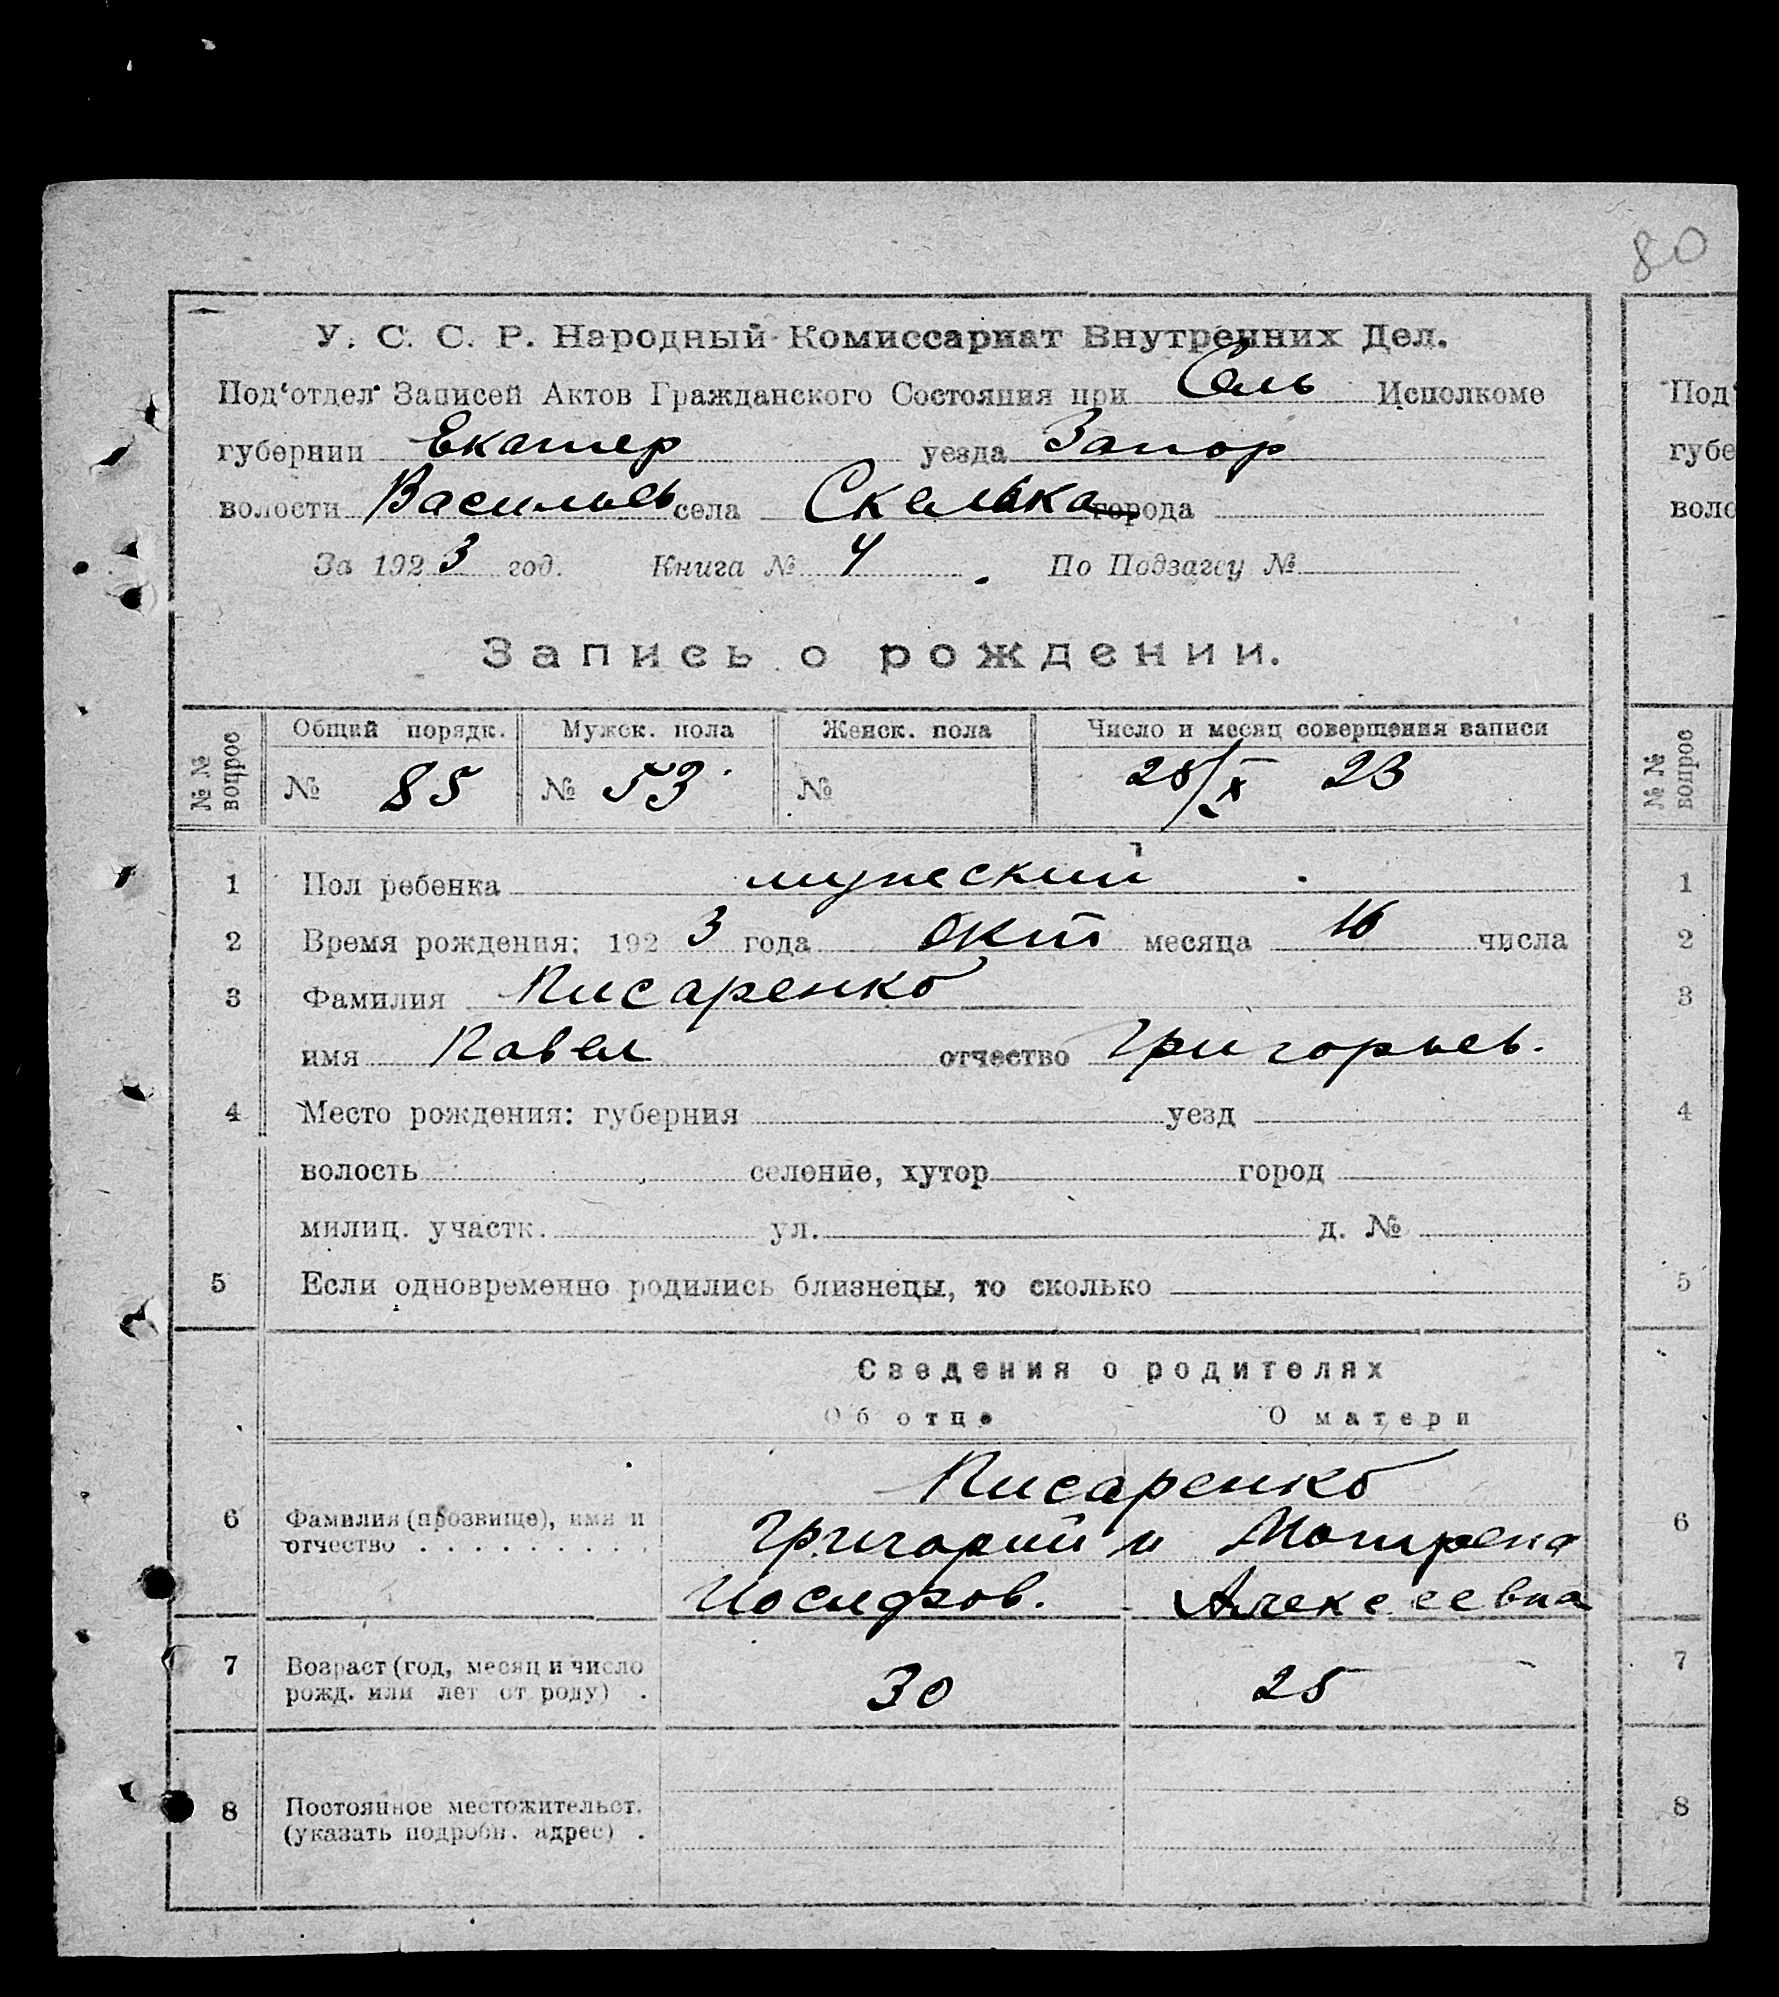 80
У. С. С. Р. Народный Комиссариат Внутренних Дел.
Под‘отдел Записей Актов Гражданского Состояния при Сель Исполкоме
губернии Екатер уезда Запор
волости Васильев села Скелька города
За 1923 год. Книга № 4 По Подзагсу №
Запись о рождении.
№ № вопрос Общий порядк. Мужск. пола Женск. пола Число и месяц совершения записи
№ 85 № 53 № 28/X 23
1 Пол ребенка мужеский
2 Время рождения: 1923 года Окт месяца 16 числа
3 Фамилия Писаренко
имя Павел отчество Григорьев.
4 Место рождения: губерния уезд
волость селение, хутор город
милиц. участк. ул. д. №
5 Если одновременно родились близнецы, то сколько
Сведения о родителях
Об отце О матери
Писаренко
6 Фамилия (прозвище), имя и Григорий и Мотрена
отчество . . . . . . . . . Иосифов. Алексеевна
7 Возраст (год, месяц и число
рожд. или лет от роду) . 30 25
8 Постоянное местожительст.
(указать подробн. адрес) .
Под‘
губе
воло
№ № вопрос
1
2
3
4
5
6
7
8